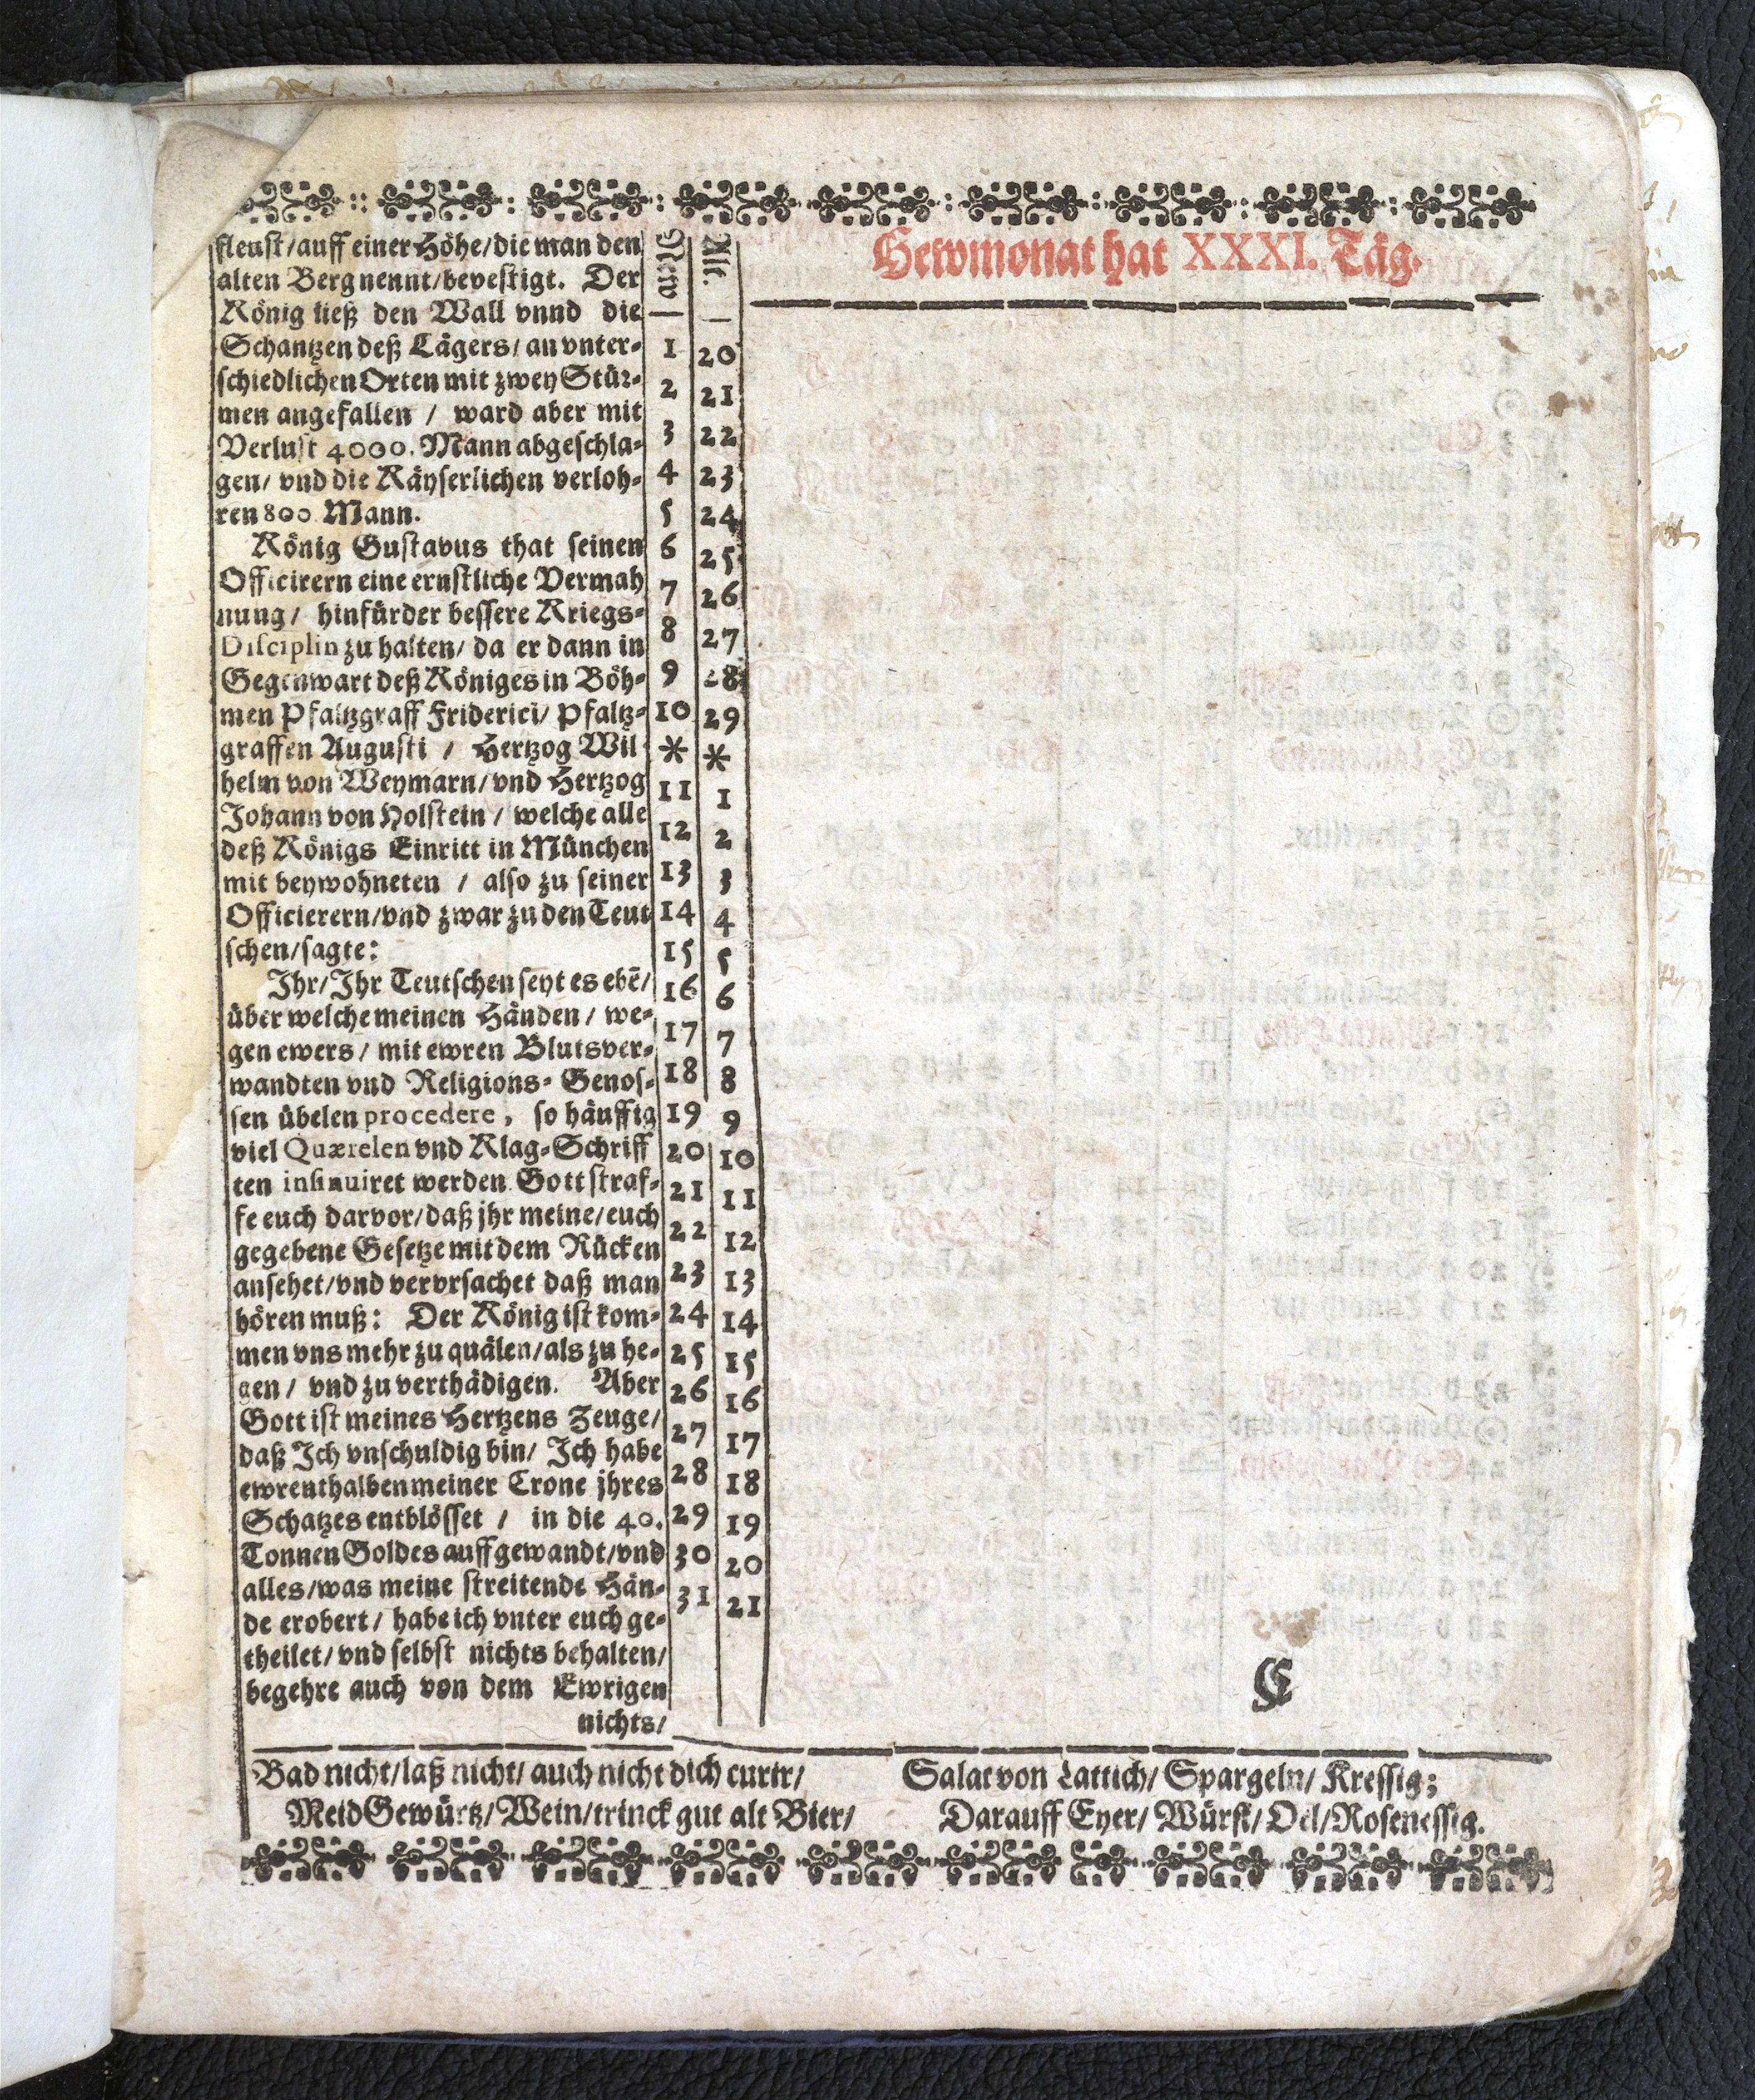 fleust/auff einer Höhe/die man den
alten Berg nennt/bevestigt. Der
König ließ den Wall vnnd die
Schantzen deß Lägers/ an vnter-
schiedlichen Orten mit zwey Stür-
men angefallen / ward aber mit
Verlust 4000. Mann abgeschla-
gen/ vnd die Käyserlichen verloh-
ren 800 Mann.
König Gustavus that seinen
Officirern eine ernstliche Vermah
nung/ hinfürder bessere Kriegs-
Disciplin zu halten/ da er dann in
Gegenwart deß Königes in Böh-
men Pfaltzgraff Friderici/ Pfaltz-
graffen Augusti / Hertzog Wil
helm von Weymarn/vnd Hertzog
Johann von Holstein / welche alle
deß Königs Einritt in München
mit beywohneten / also zu seiner
Officierern/vnd zwar zu den Teut
schen/sagte:
Ihr/Ihr Teutschen seyt es ebē/
über welche meinen Händen/ we-
gen ewers/ mit ewren Blutsver-
wandten vnd Religions- Genos-
sen übelen procedere, so häuffig
viel Quærelen vnd Klag-Schriff
ten insinuiret werden. Gott straf-
fe euch darvor/daß jhr meine/euch
gegebene Gesetze mit dem Rücken
ansehet/vnd vervrsachet daß man
hören muß: Der König ist kom-
men vns mehr zu quälen/als zu he-
gen/ vnd zu verthädigen. Aber
Gott ist meines Hertzens Zeuge/
daß Ich vnschuldig bin/ Ich habe
ewrenthalben meiner Crone jhres
Schatzes entblösset / in die 40.
Tonnen Goldes auffgewandt/vnd
alles/was meine streitende Hän-
de erobert/ habe ich vnter euch ge-
theilet/vnd selbst nichts behalten/
begehre auch von dem Ewrigen
nichts/
New Alt.
1 20
2 21
3 22
4 23
5 24
6 25
7 26
8 27
9 28
10 29
* *
11 1
12 2
13 3
14 4
15 5
16 6
17 7
18 8
19 9
20 10
21 11
22 12
23 13
24 14
25 15
26 16
27 17
28 18
29 19
30 20
31 21
Hewmonat hat XXXI. Täg.
C
Bad nicht/laß nicht/ auch nicht dich curir/
Meid Gewürtz/Wein/trinck gut alt Bier/
Salat von Lattich/ Spargeln/ Kressig;
Darauff Eyer/ Würst/Oel/Rosenessig.